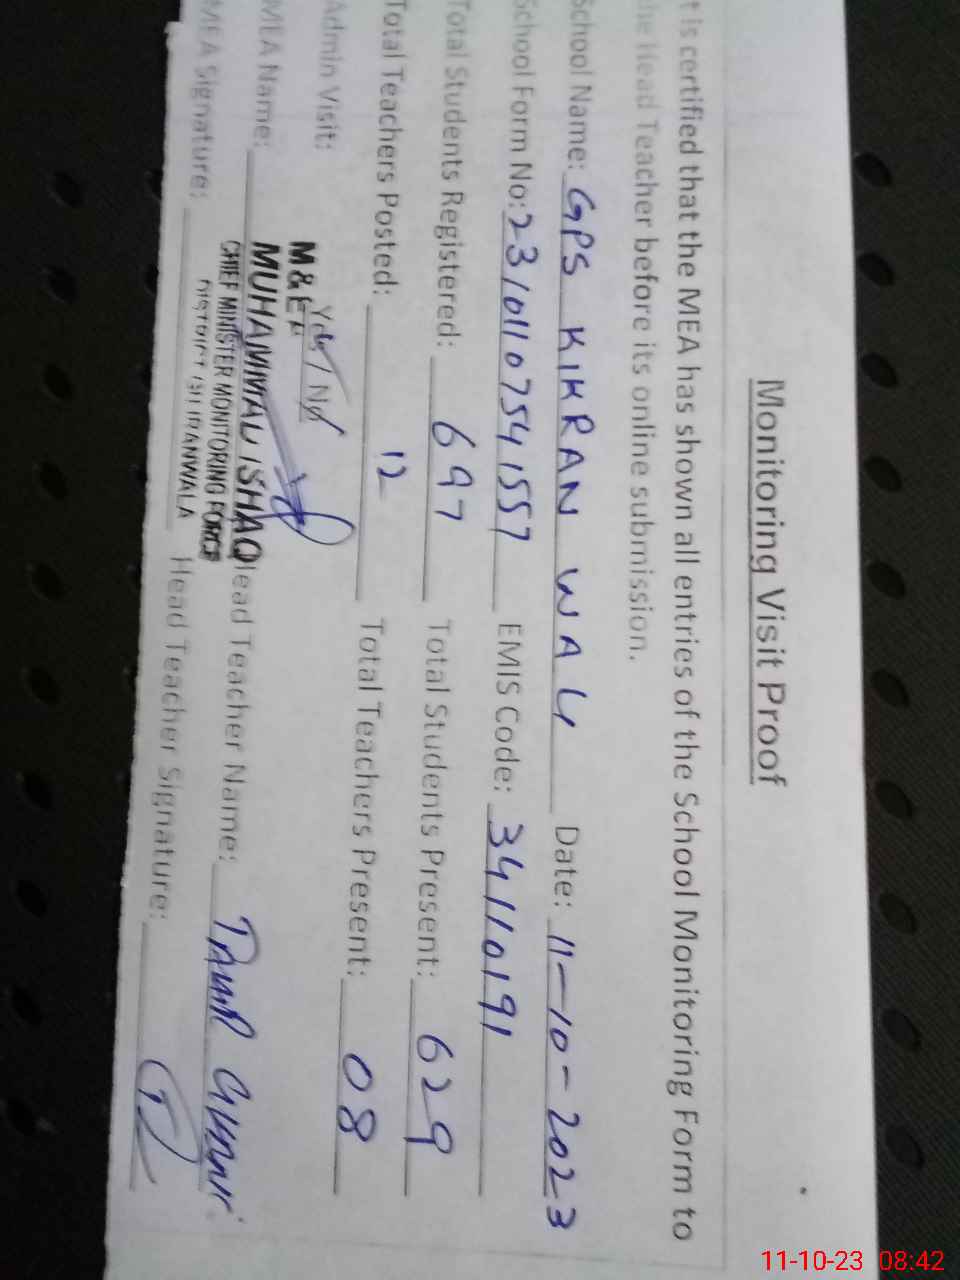 Monitoring Visit Proof
t is certified that the MEA has shown all entries of the School Monitoring Form to
he Head Teacher before its online submission.
School Name: GPS KIKRAN WALI Date: 11-10-2023
School Form No: 23101107541557 EMIS Code: 34110191
Total Students Registered: 697 Total Students Present: 629
Total Teachers Posted: 12 Total Teachers Present: 08
Admin Visit: Yes / No
M&EA
MEA Name: MUHAMMAD ISHAQ Head Teacher Name:
CHIEF MINISTER MONITORING FORCE
MEA Signature: Head Teacher Signature:
DISTRICT
11-10-23 08:42